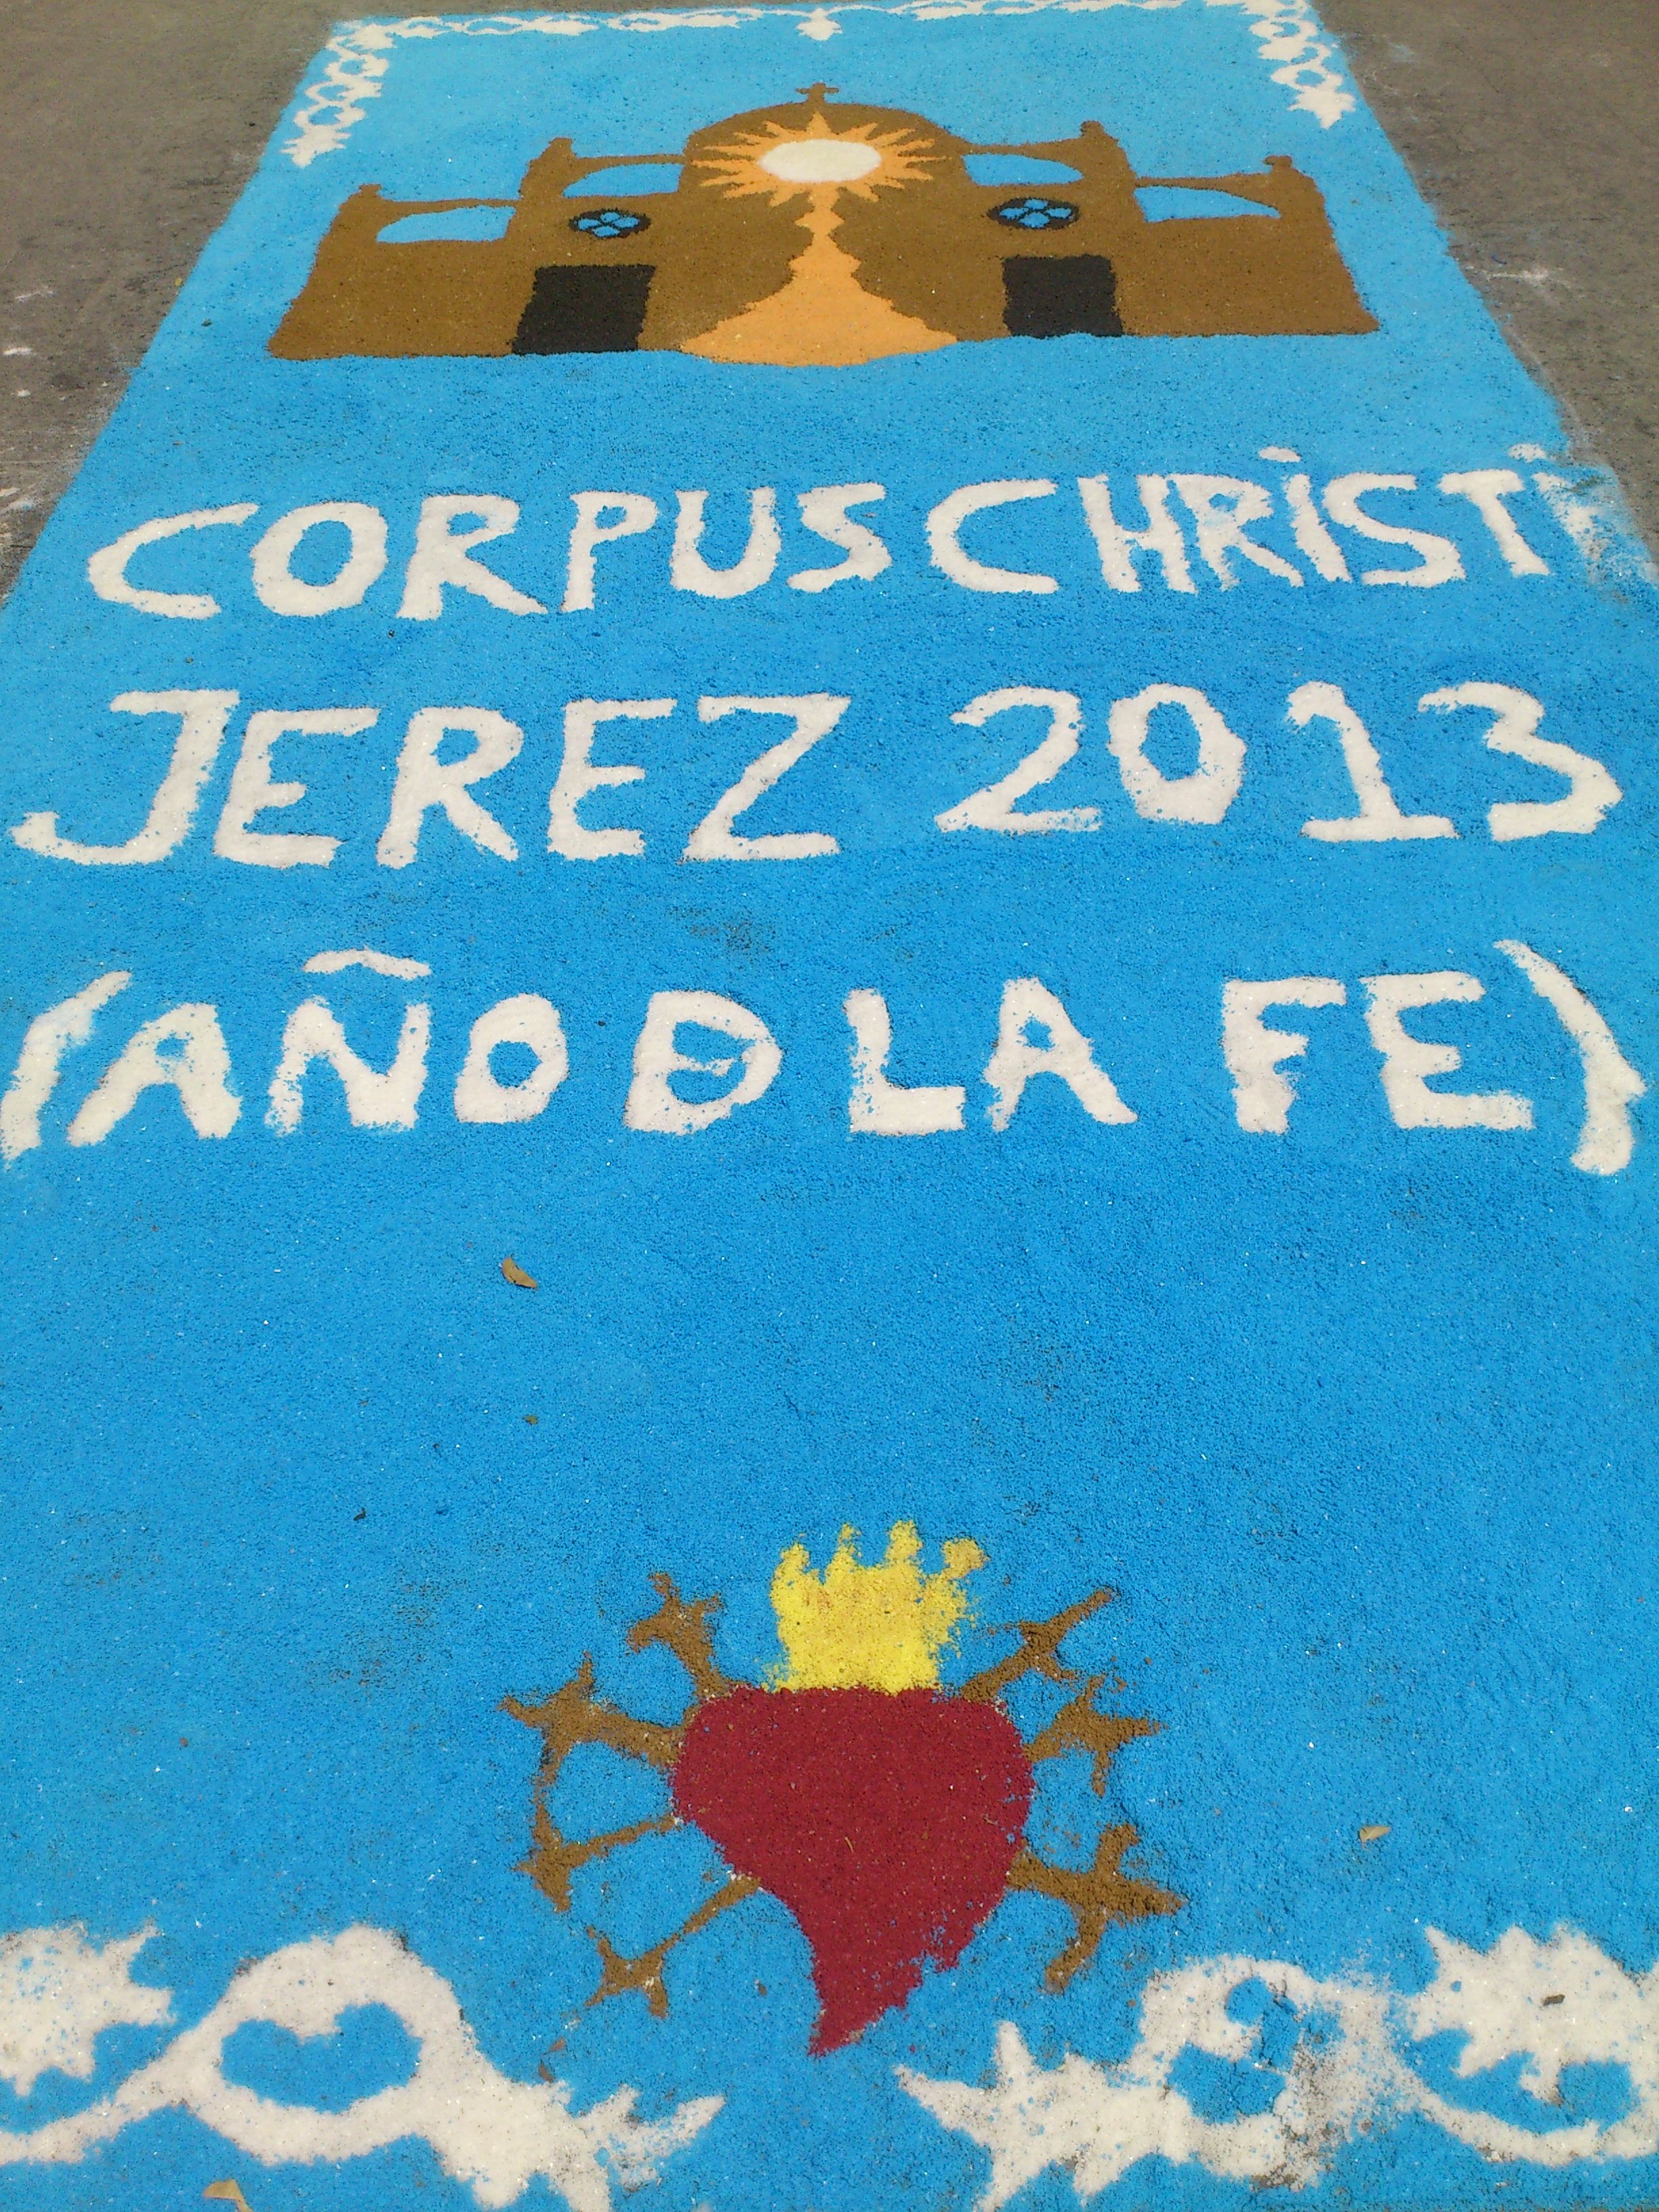 CORPUS CHRiSTi
JEREZ 2013
(AÑO DE LA FE)